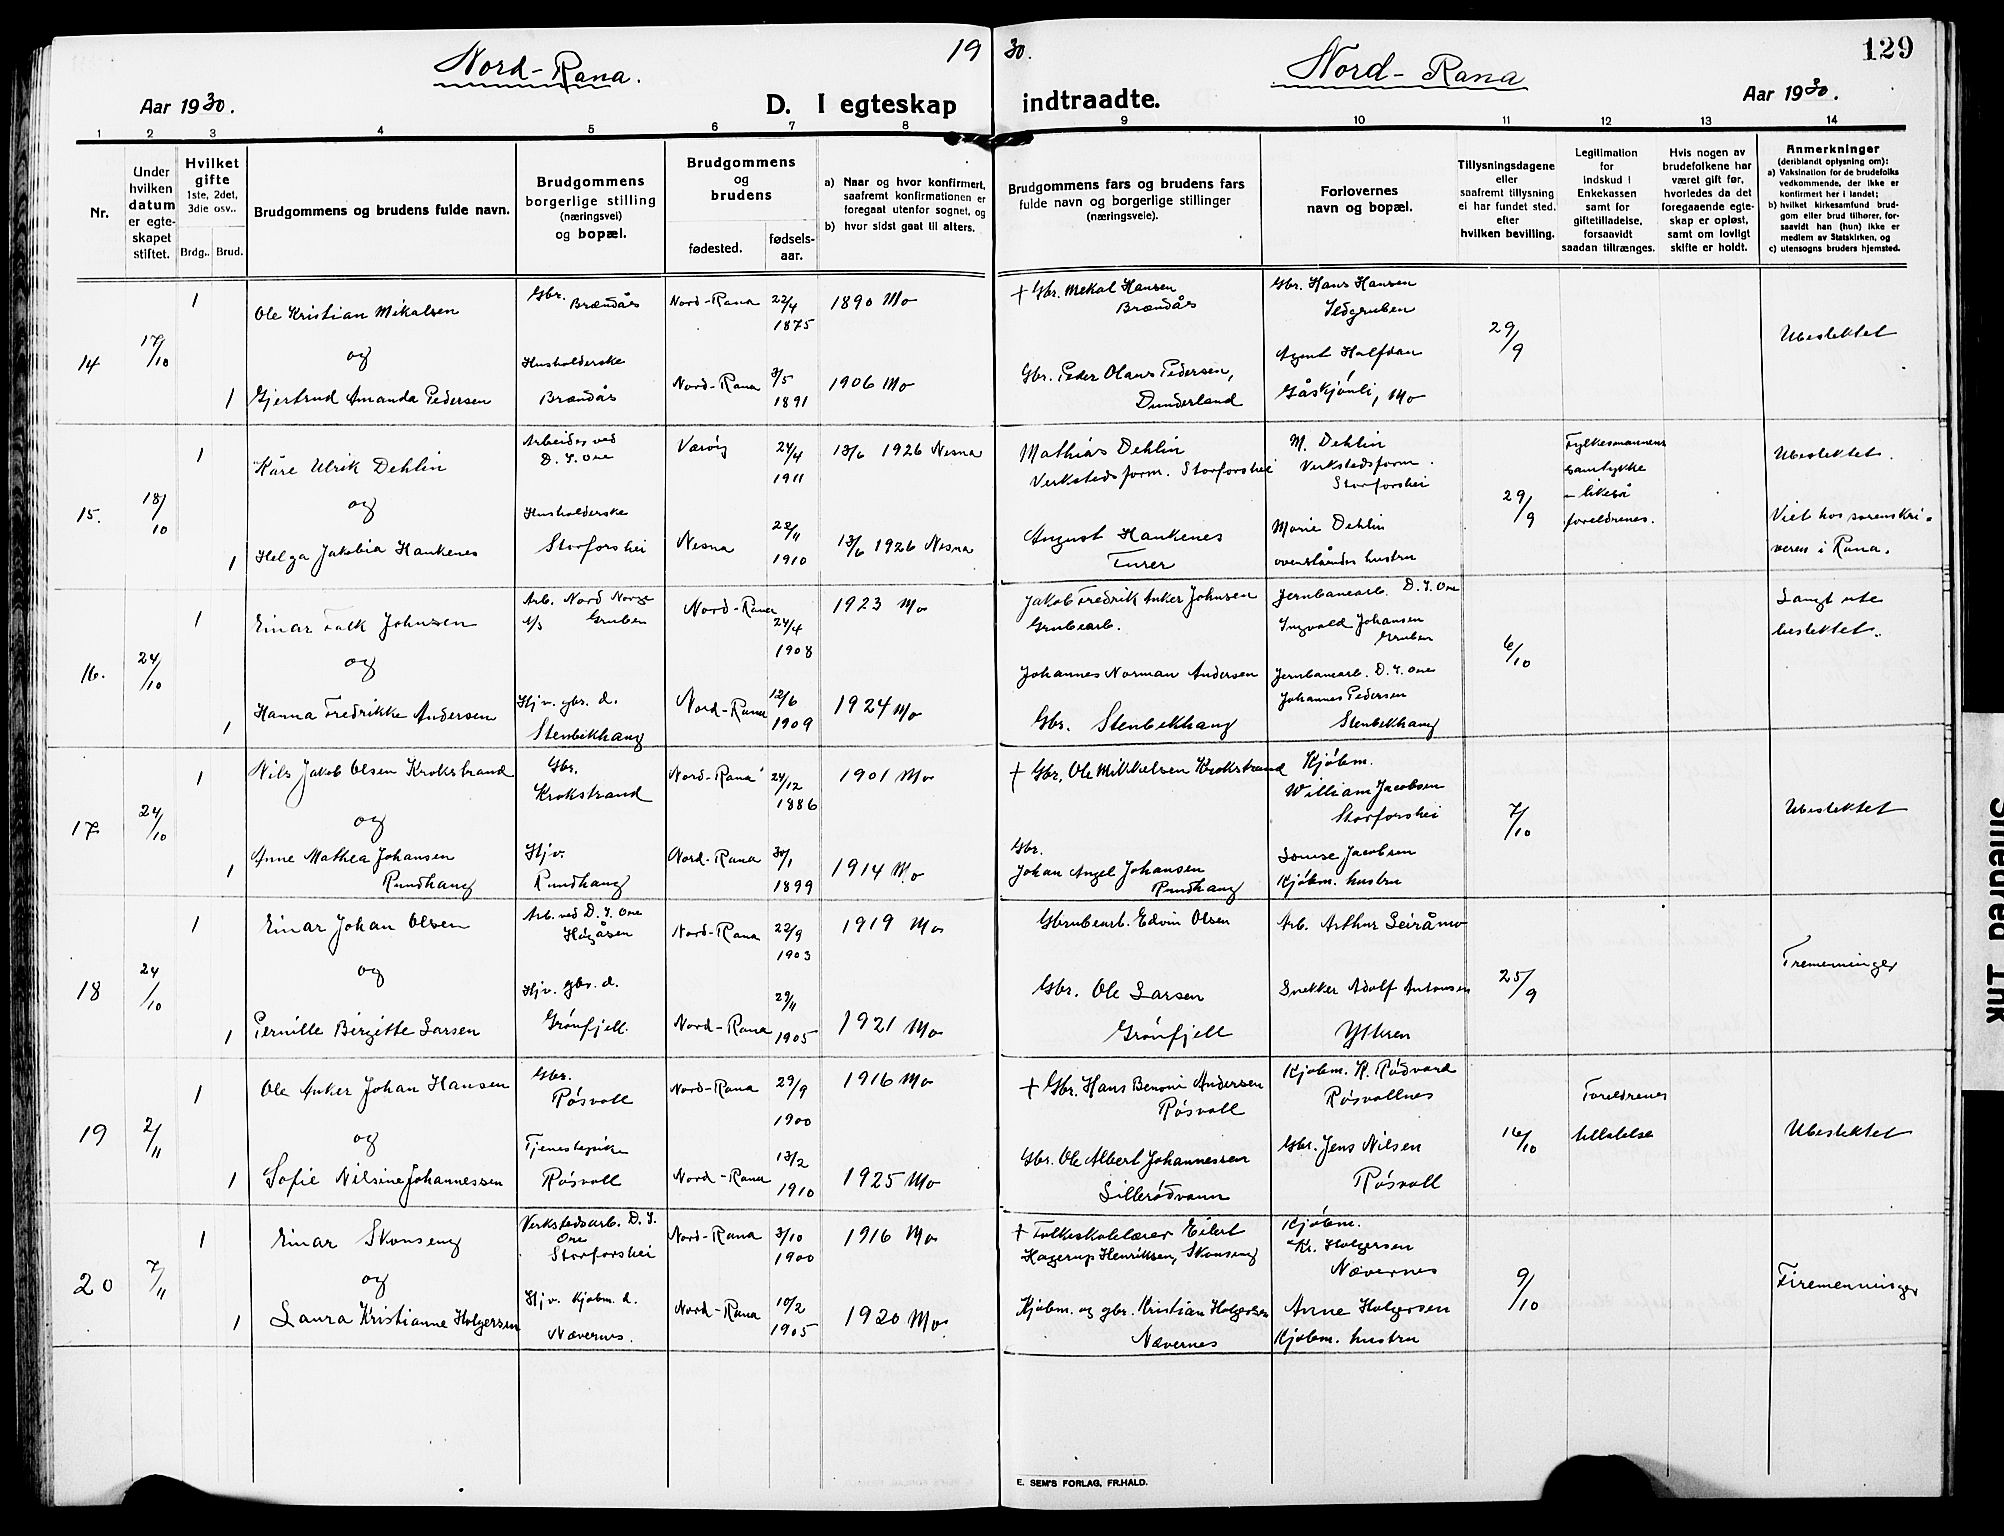 Nord-Rana.
19 30.
Nord-Rana
129
Aar 1930.
D. I egteskap indtraadte.
Aar 1930.
1 2 3 4 5 6 7 8 9 10 11 12 13 14
Nr.
Under hvilken datum er egte-skapet stiftet.
Hvilket gifte
1ste, 2det, 3die osv..
Brdg.. Brud.
Brudgommens og brudens fulde navn.
Brudgommens borgerlige stilling
(næringsvei)
og bopæl.
Brudgommens og brudens
fødested.
fødsels-aar.
a) Naar og hvor konfirmert, saafremt konfirmationen er foregaat utenfor sognet, og
b) hvor sidst gaat til alters.
Brudgommens fars og brudens fars fulde navn og borgerlige stillinger
(næringsveie).
Forlovernes navn og bopæl.
Tillysningsdagene eller saafremt tillysning ei har fundet sted. efter hvilken bevilling.
Legitimation for indskud i Enkekassen samt for giftetilladelse, forsaavidt saadan tiltrænges.
Hvis nogen av brudefolkene har været gift før, hvorledes da det foregaaende egte-skap er opløst, samt om lovligt skifte er holdt.
Anmerkninger
(deriblandt oplysning om):
a) Vaksination for de brudefolks vedkommende, der ikke er konfirmert her i landet;
b) hvilket kirkesamfund brud-gom eller brud tilhører, for-saavidt han (hun) ikke er medlem av Statskirken, og
c) utensogns bruders hjemsted.
14
17/10
1
Ole Kristian Mikalsen
Gbr. Brændås
Nord-Rana
22/4 1875
1890 Mo
+ Gbr. Mekal Hansen
Brændås
Gbr. Hans Hansen
Ildgruben
29/9
Ubeslektet
og
1
Gjertrud Amanda Pedersen
Husholderske
Brændås
Nord-Rana
3/5 1891
1906 Mo
Gbr. Peder Olaus Pedersen,
Dunderland
Agent Halfdan
Gåskjønli, Mo
15.
18/10
1
Kåre Ulrik Dehlin
Arbeider ved
D. I. Ore
Værøy
24/4 1911
13/6 1926 Nesna
Mathias Dehlin
Verkstedsform. Storforshei
M. Dehlin
Verkstedsform.
Storforshei
29/9
Fylkesmannens
samtykke
- likeså
foreldrenes.
Ubeslektet.
og
1
Helga Jakobia Haukenes
Husholderske
Storforshei
Nesna
22/11 1910
13/6 1926 Nesna
August Haukenes
Turer
Marie Dehlin
ovenståendes hustru
Viet hos sorenskri-
veren i Rana.
16.
24/10
1
Einar Falk Johnsen
Arb. Nord Norge
A/S Gruben
Nord-Rana
24/4 1908
1923 Mo
Jakob Fredrik Anker Johnsen
Grubearb.
Jernbanearb. D. I. Ore
Ingvald Johansen
Gruben
6/10
Langt ute
beslektet.
og
1
Hanna Fredrikke Andersen
Hjv. gbr. d.
Stenbekhaug
Nord-Rana
12/6 1909
1924 Mo
Johannes Norman Andersen
Gbr. Stenbekhaug
Jernbanearb. D. I. Ore
Johannes Pedersen
Stenbekhaug
17
24/10
1
Nils Jakob Olsen Krokstrand
Gbr.
Krokstrand
Nord-Rana
24/12 1886
1901 Mo
+ Gbr. Ole Mikkelsen Krokstrand
Kjøbm.
William Jacobsen
Storforshei
7/10
Ubeslektet
og
1
Anne Mathea Johansen
Rundhaug
Hjv.
Rundhaug
Nord-Rana
30/1 1899
1914 Mo
Gbr.
Johan Angel Johansen
Rundhaug
Louise Jacobsen
Kjøbm. hustru
18
24/10
1
Einar Johan Olsen
Arb. ved D. I. Ore
Høgåsen
Nord-Rana
22/9 1903
1919 Mo
Gbrubearb. Edvin Olsen
Arb. Arthur Leiråmo
25/9
Tremenninger
og
1
Pernille Birgitte Larsen
Hjv. gbr. d.
Grønfjell
Nord-Rana
29/11 1905
1921 Mo
Gbr. Ole Larsen
Grønfjell
Snekker Adolf Antonsen
Ytteren
19
2/11
1
Ole Anker Johan Hansen
Gbr.
Røsvoll
Nord-Rana
29/9 1900
1916 Mo
+ Gbr. Hans Benoni Andersen
Røsvoll
Kjøbm. K. Rødvard
Røsvollnes
16/10
Foreldrenes
tillatelse
Ubeslektet
og
1
Sofie Nilsine Johannessen
Tjenestepike
Røsvoll
Nord-Rana
13/2 1910
1925 Mo
Gbr. Ole Albert Johannessen
Lillerødvann
Gbr. Jens Nilsen
Røsvoll
20
7/11
1
Einar Skonseng
Verkstedsarb. D. I.
Ore
Storforshei
Nord-Rana
3/10 1900
1916 Mo
+ Folkeskolelærer Eilert
Hagerup Henriksen, Skonseng
Kjøbm.
Kr. Holgersen
Nævernes
9/10
Firemenninger
og
1
Laura Kristianne Holgersen
Hjv. Kjøbm. d.
Nævernes.
Nord-Rana
10/2 1905
1920 Mo
Kjøbm. og gbr. Kristian Holgersen
Nævernes
Anne Holgersen
Kjøbm. hustru
E. SEM'S FORLAG, FR.HALD.